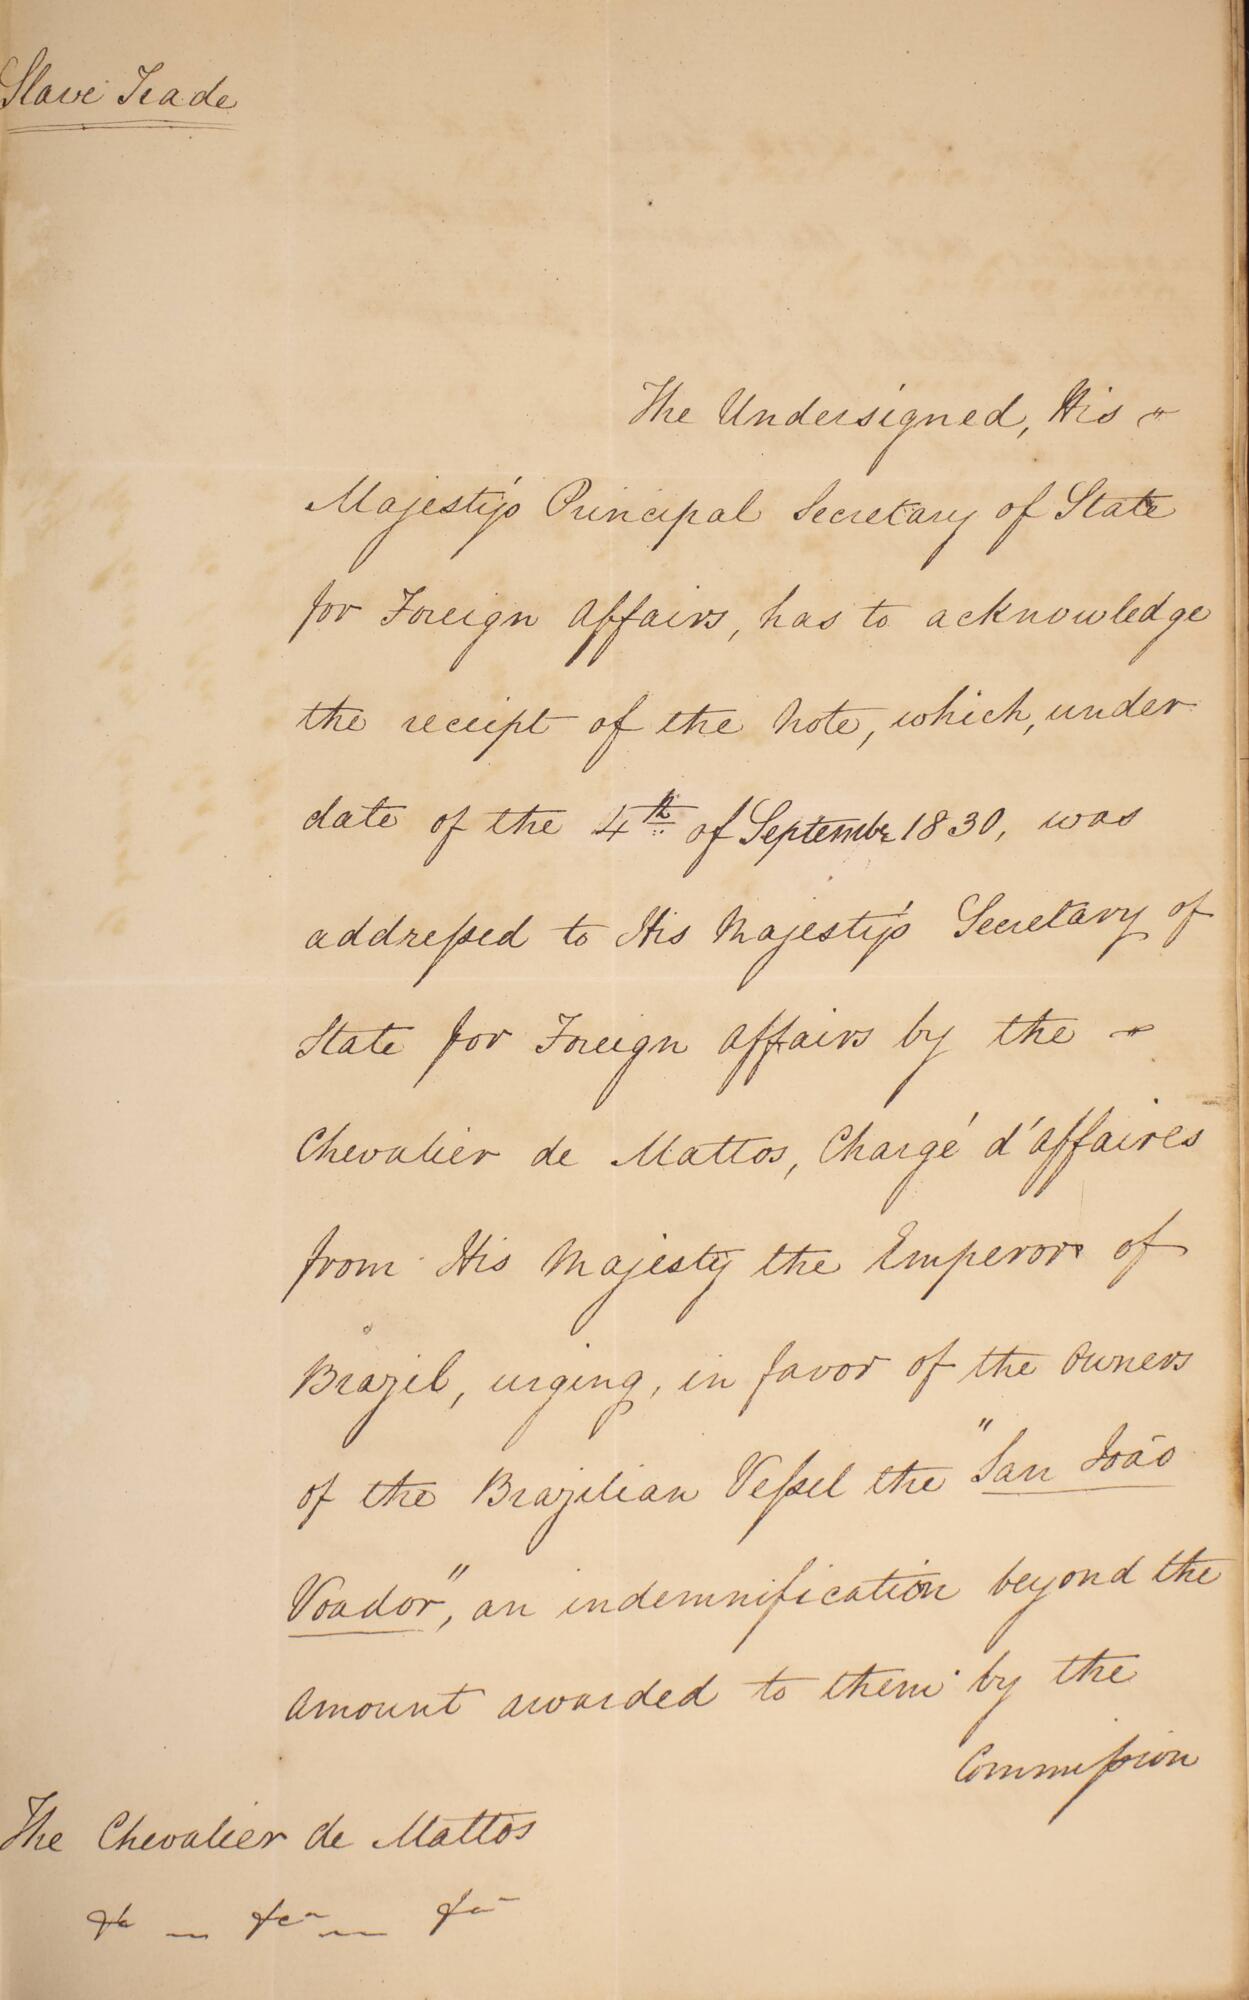 Slave Trade
The Undersigned, His
Majesty's Principal Secretary of State
for Foreign Affairs, has to acknowledge
the receipt of the Note, which, under
date of the 4th of Septembr 1830, was
addressed to His Majesty's Secretary of
State for Foreign Affairs by the
Chevalier de Mattos, Chargé d'Affaires
from His Majesty the Emperor of
Brazil, urging, in favor of the Owners
of the Brazilian Vessel the "San João
Voador", an indemnification beyond the
amount awarded to them by the
Commission
The Chevalier de Mattos
&c _ &c _ &c